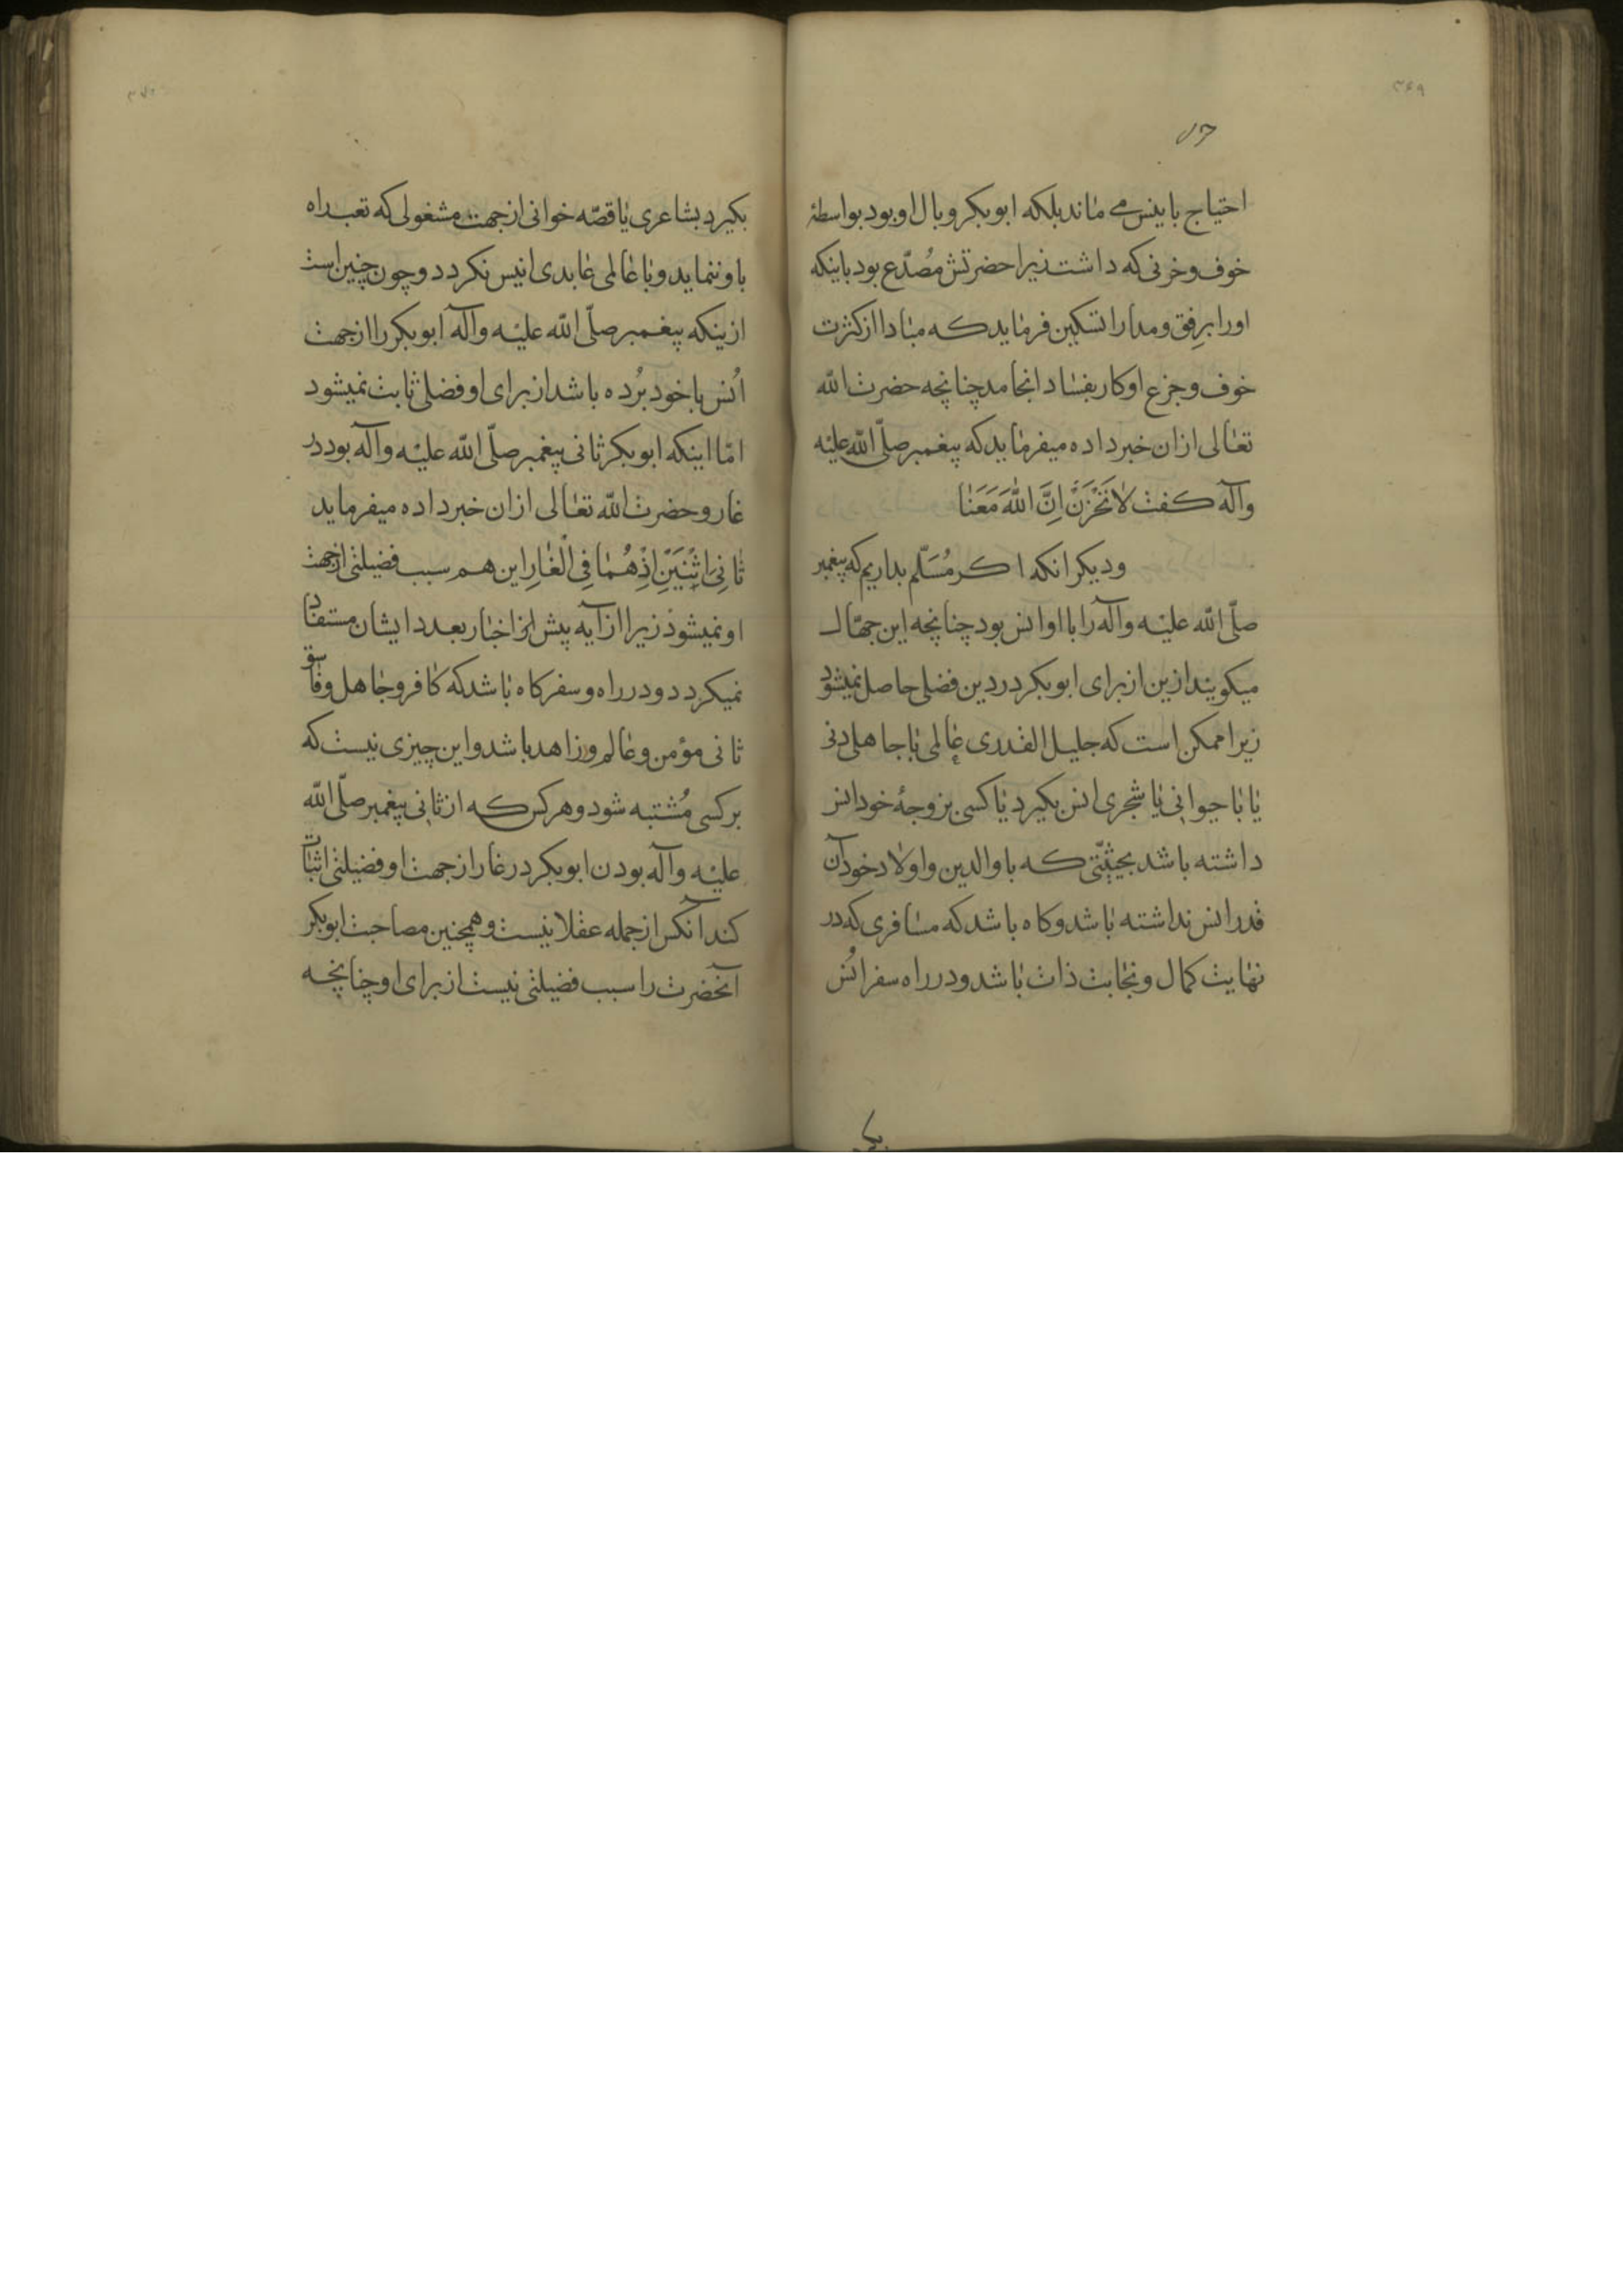 ۳۶۹
احتیاج بانیس می ماند بلکه ابوبکر وبال او بود بواسطهٔ
خوف و حزنی که داشت زیرا حضرتش مُصدّع بود باینکه
اورا برِفق و مدارا تسکین فرماید که مبادا از کثرت
خوف و جزع او کار بفساد انجامد چنانچه حضرت الله
تعالی ازان خبر داده میفرماید که پیغمبر صلّی الله علیه
وآله کفت لا تَحْزَنْ اِنَّ اللهَ مَعَنا
و دیکر انکه اکر مُسَلّم بداریم که پیغمبر
صلّی الله علیه وآله را با او انس بود چنانچه این جهّال
میکویند ازین از برای ابوبکر در دین فضلی حاصل نمیشود
زیرا ممکن است که جلیل القدری عالمی با جاهلی دنی
یا با حیوانی یا شجری انس بکیرد یا کسی بزوجهٔ خود انس
داشته باشد بحیثیّتی که با والدین و اولاد خود آن
قدر انس نداشته باشد و کاه باشد که مسافری که در
نهایت کمال و نجابت ذات باشد و در راه سفر اُنس
بکیرد بشاعری یا قصّه خوانی از جهت مشغولی که تعب راه
باو ننماید و با عالمی عابدی انیس نکردد و چون چنین است
ازینکه پیغمبر صلّی الله علیه وآله ابوبکر را از جهت
اُنس با خود بُرده باشد از برای او فضلی ثابت نمیشود
امّا اینکه ابوبکر ثانی پیغمبر صلّی الله علیه وآله بود در
غار و حضرت الله تعالی ازان خبر داده میفرماید
ثانِیَ اثْنَیْنِ اِذْ هُمٰا فِی الْغٰارِ این هم سبب فضیلتی از جهت
او نمیشود زیرا از آیه پیش از اخبار بعدد ایشان مستفاد
نمیکردد و در راه و سفر کاه باشد که کافر و جاهل و فاسق
ثانی مؤمن و عالم و زاهد باشد و این چیزی نیست که
بر کسی مُشتبه شود و هر کس که از ثانی پیغمبر صلّی الله
علیه وآله بودن ابوبکر در غار از جهت او فضیلتی اثبات
کند آنکس از جمله عقلا نیست و همچنین مصاحبت ابوبکر
آنحضرت را سبب فضیلتی نیست از برای او چنانچه